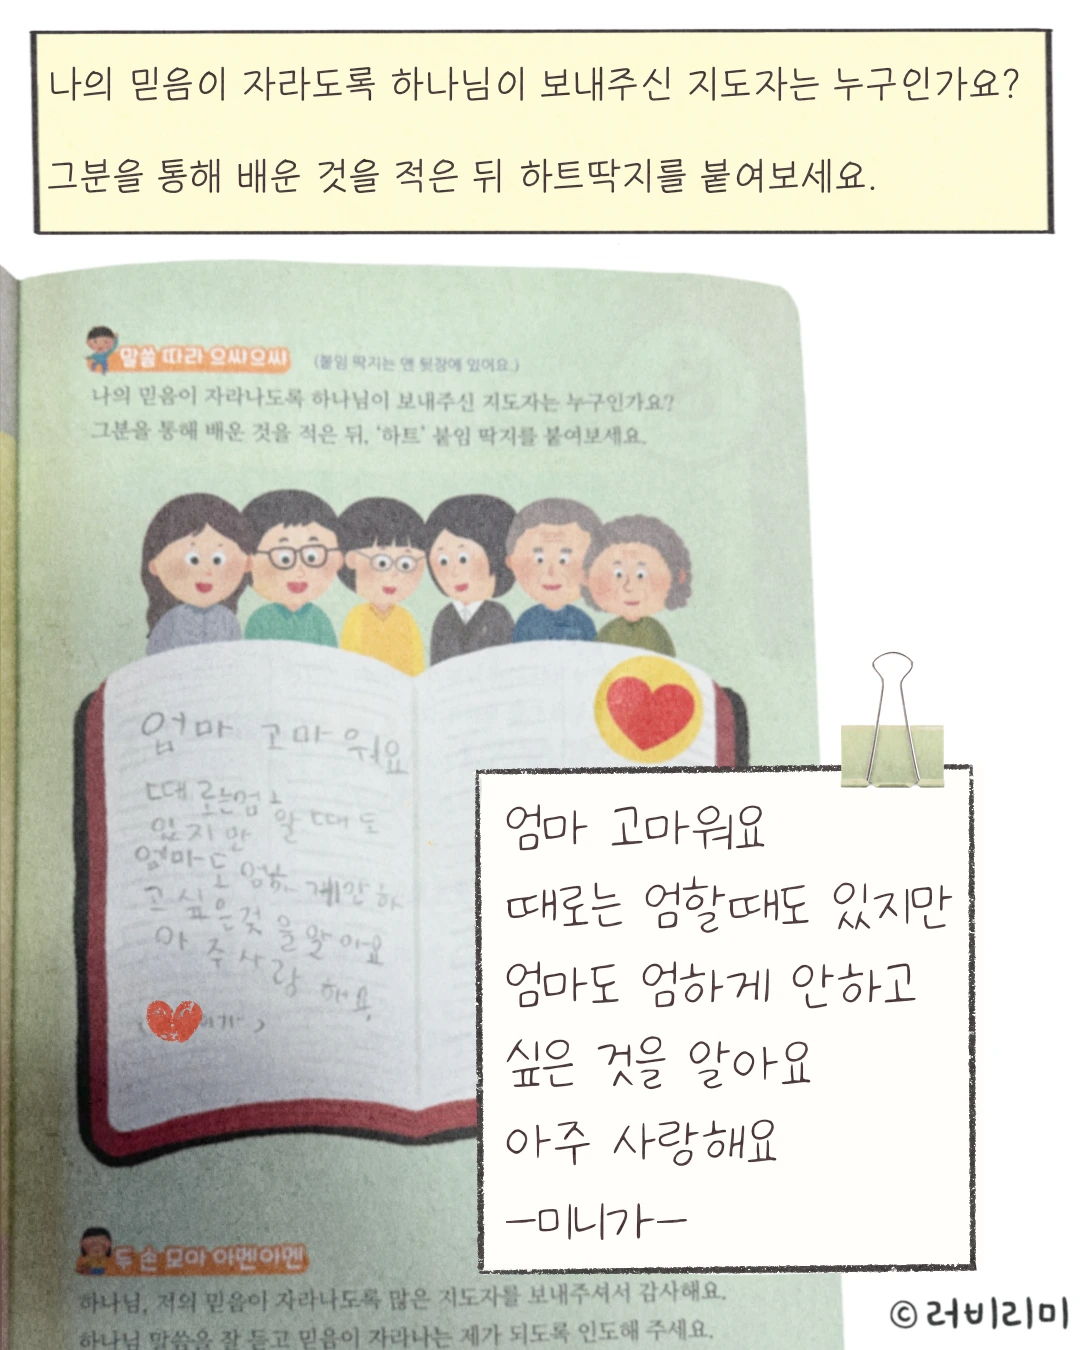 나의 믿음이 자라도록 하나님이 보내주신 지도자는 누구인가요?
그분을 통해 배운 것을 적은 뒤 하트딱지를 붙여보세요.
말씀 따라 으싸으싸 (붙임 딱지는 맨 뒷장에 있어요.)
나의 믿음이 자라나도록 하나님이 보내주신 지도자는 누구인가요?
그분을 통해 배운 것을 적은 뒤, '하트' 붙임 딱지를 붙여보세요.
엄마 고마워요
때로는엄할때도
있지만
엄마도 엄하게안하
고 싶은것을알아요
아주사랑해요
이가
엄마 고마워요
때로는 엄할때도 있지만
엄마도 엄하게 안하고
싶은 것을 알아요
아주 사랑해요
-미니가-
두 손 모아 아멘아멘
하나님, 저의 믿음이 자라나도록 많은 지도자를 보내주셔서 감사해요.
하나님 말씀을 잘 듣고 믿음이 자라나는 제가 되도록 인도해 주세요.
©러비리미